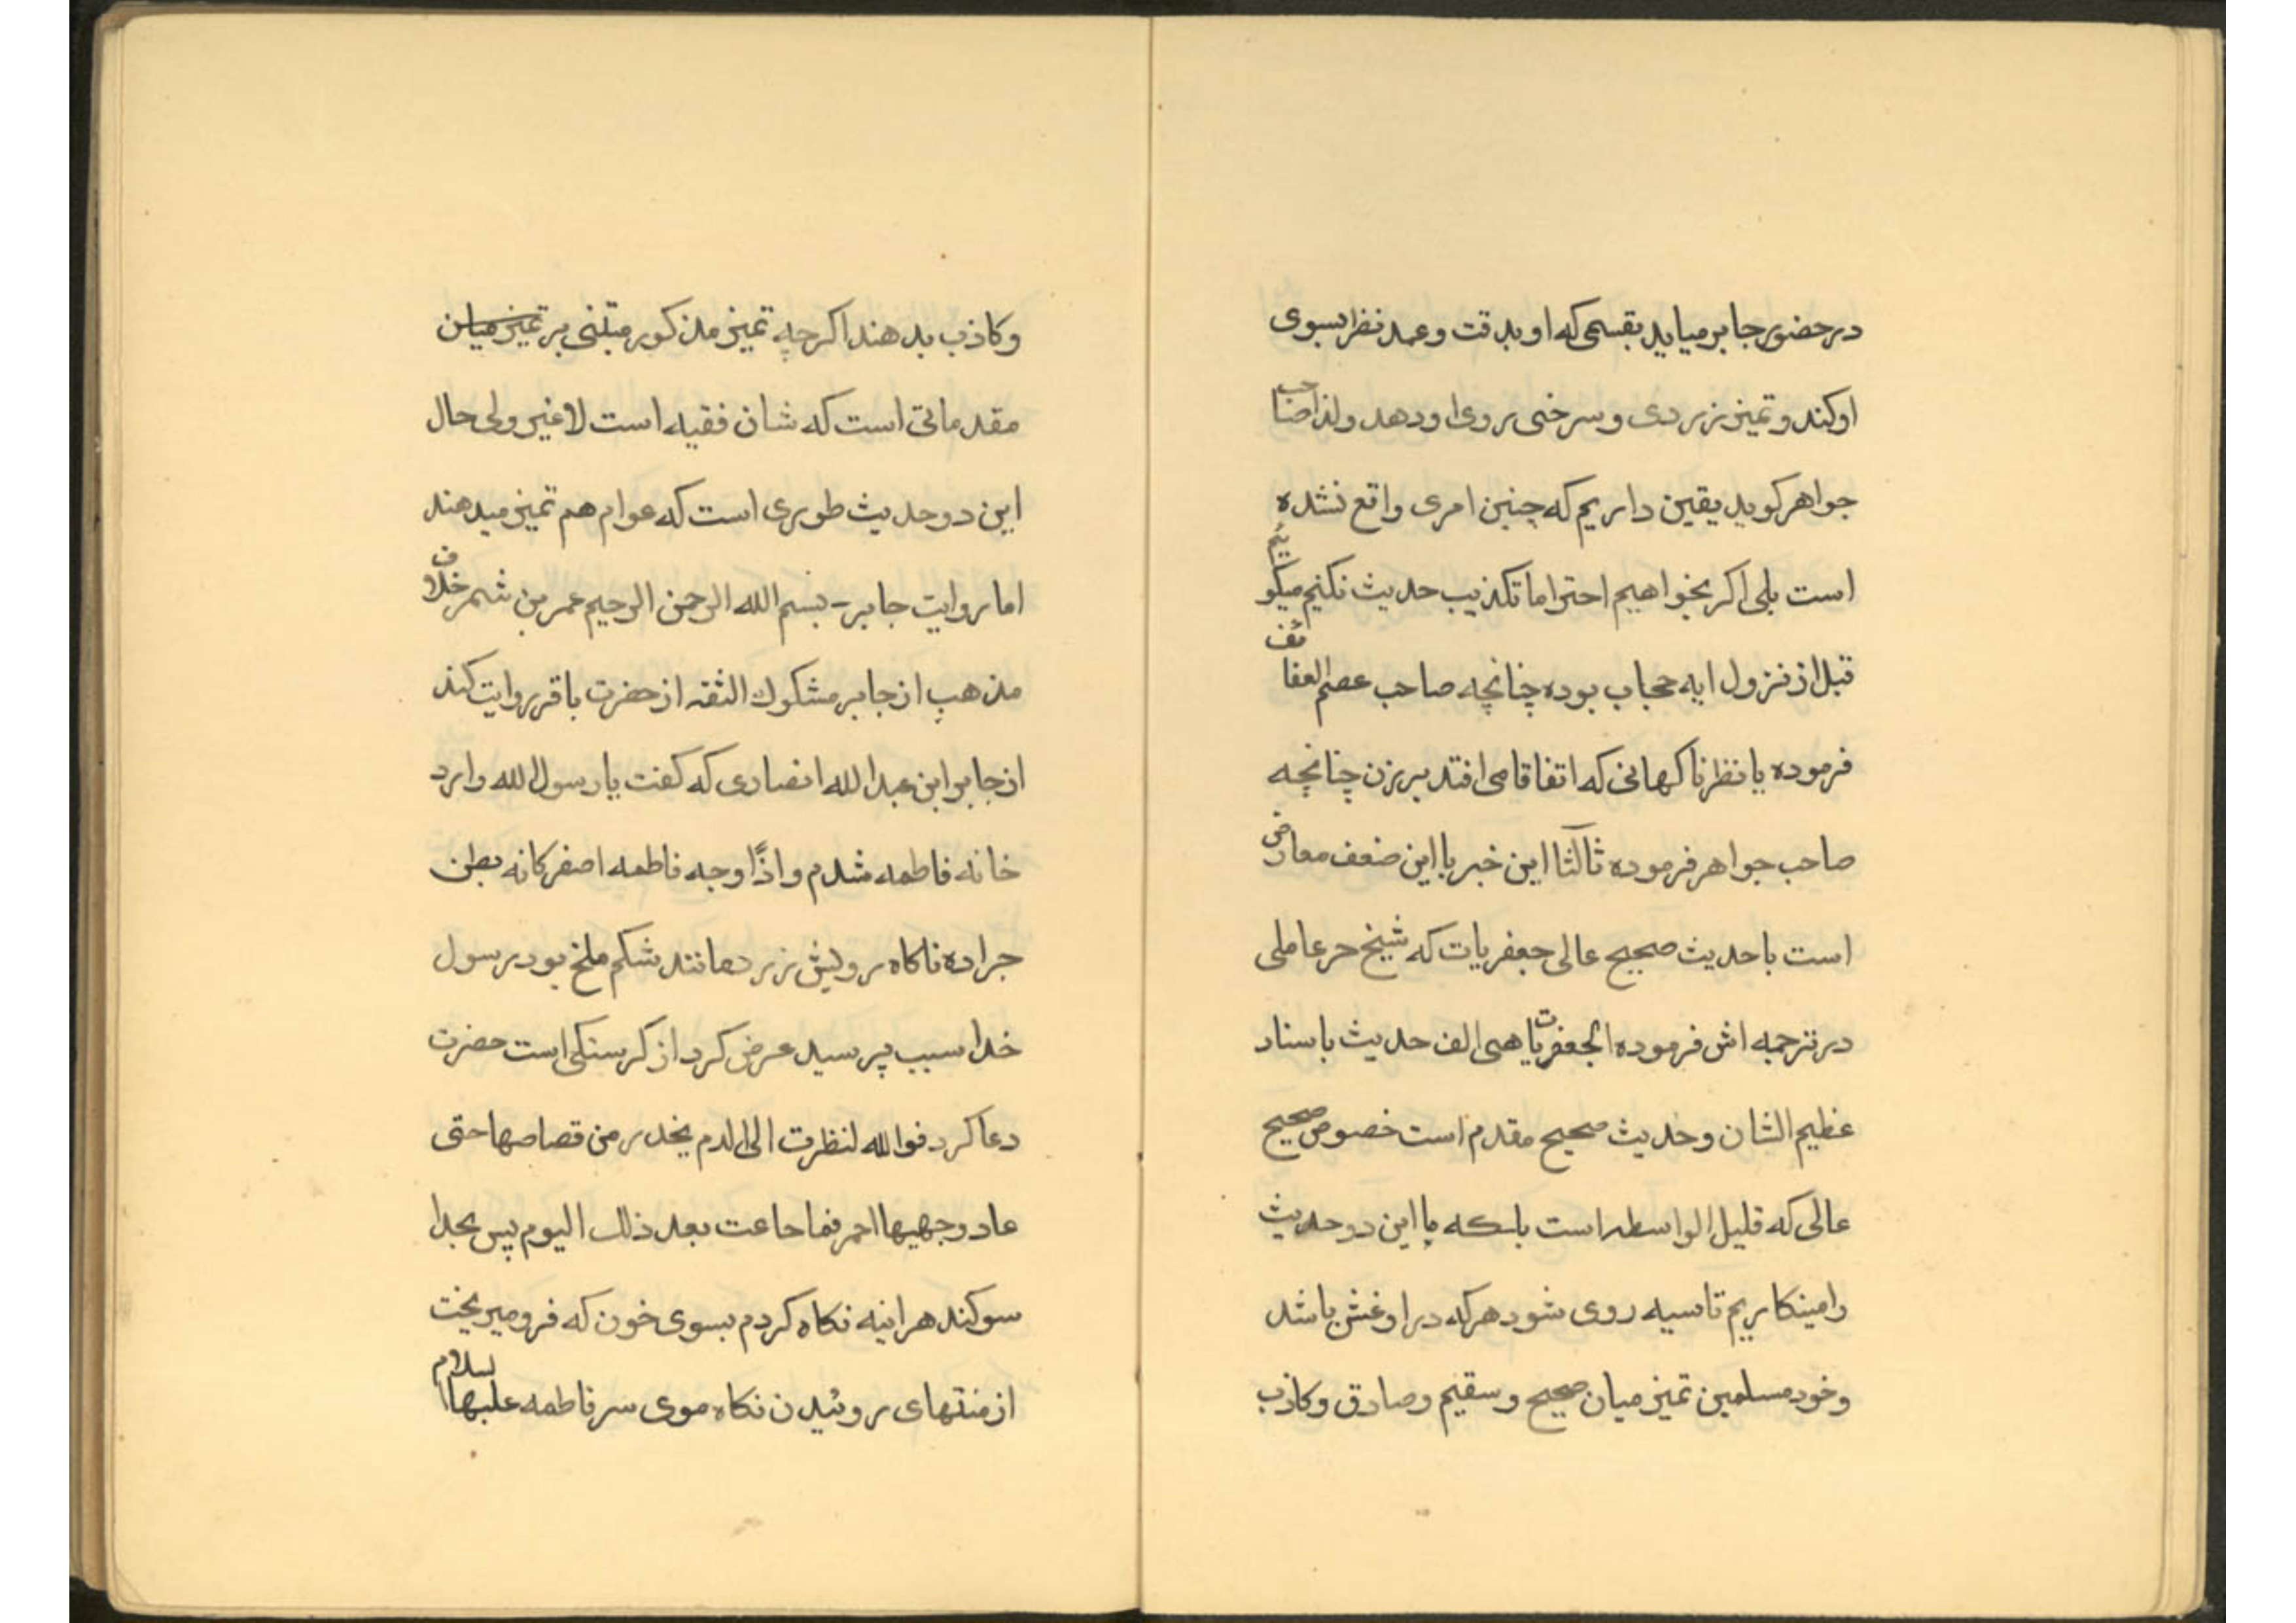 در حضور جابر میاید بقسمی که او بدقت وعمد نظر بسوی
او کند و تمیز زردی و سرخی روی او دهد ولذا صاحب
جواهر کوید یقین داریم که چنین امری واقع نشده
است بلی اکر بخواهیم احتراما تکذیب حدیث نکنیم میکوئیم
قبل از نزول ایه حجاب بوده چنانچه صاحب عصم العفائف
فرموده یا نظر ناکهانی که اتفاقا می افتد بر زن چنانچه
صاحب جواهر فرموده ثالثا این خبر با این ضعف معارض
است با حدیث صحیح عالی جعفریات که شیخ حر عاملی
در ترجمه اش فرموده الجعفریات هی الف حدیث باسناد
عظیم الشان وحدیث صحیح مقدم است خصوص صحیح
عالی که قلیل الواسطه است با این دو حدیث
را مینکاریم تا سیه روی شود هرکه در او غش باشد
وخود مسلمین تمیز میان صحیح وسقیم وصادق وکاذب
وکاذب بدهند اکرچه تمیز مذکور مبتنی بر تمیز میان
مقدماتی است که شان فقیه است لاغیر ولی حال
این دو حدیث طوری است که عوام هم تمیز میدهند
اما روایت جابر - بسم الله الرحمن الرحیم عمر بن شمر خلاف
مذهب از جابر مشکوك الثقه از حضرت باقر روایت کند
از جابر ابن عبدالله انصاری که کفت یا رسول الله وارد
خانه فاطمه شدم واذًا وجه فاطمه اصفر کانه بطن
جراده ناکاه رویش زرد مانند شکم ملخ بود رسول
خدا سبب پرسید عرض کرد از کرسنکی است حضرت
دعا کرد فوالله لنظرت الی الدم یخدر من قصاصها حتی
عاد وجهیها احمر فما جاعت بعد ذلك الیوم پس بخدا
سوکند هراینه نکاه کردم بسوی خون که فرو میریخت
از منتهای روئیدن نکاه موی سر فاطمه علیها السلام